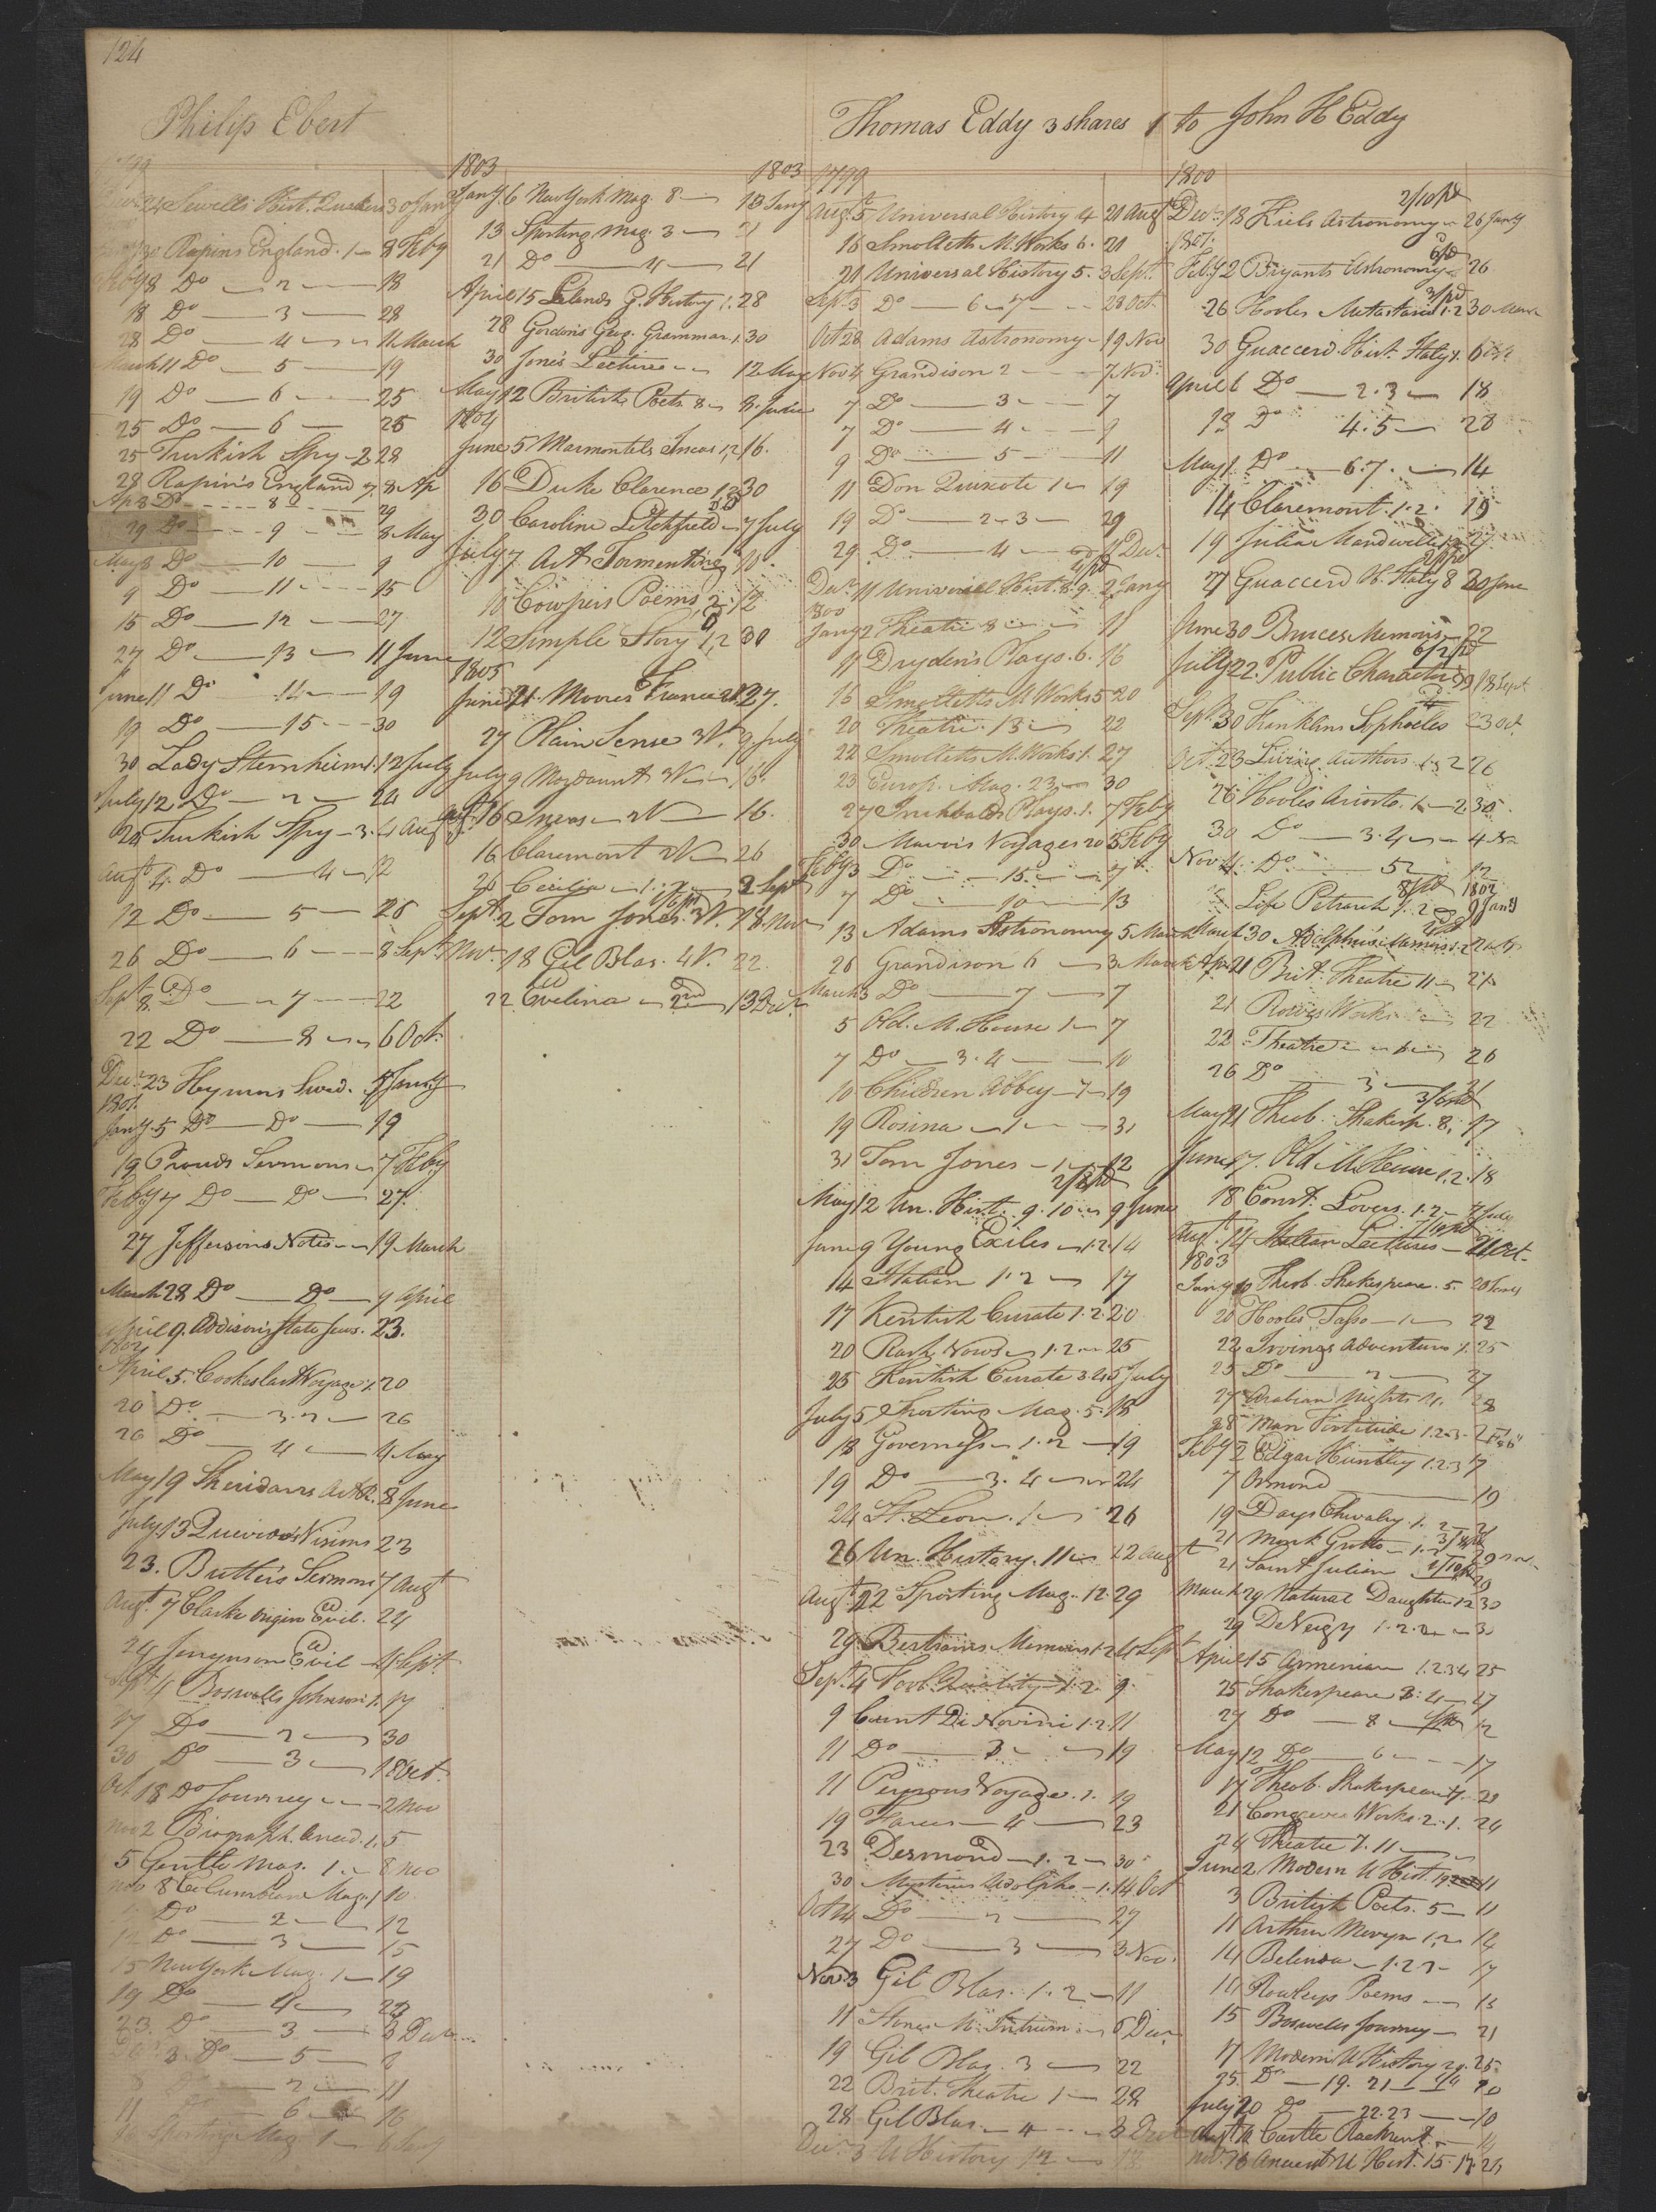 124
Philip Ebert
1799
24 Sewells Hist. Quakers 30 Jany
30 Rapins England. 1 8 Feby
Feby 8 Do 2 18
18 Do 3 28
28 Do 4 11 March
March 11 Do 5 19
19 Do 6 25
25 Do 6 26
25 Turkish Spy 2 28
28 Rapin's England 7. 8 Ap
Ap 8 Do 8 29
29 Do 9 8 May
May 8 Do 10 9
9 Do 11 15
15 Do 12 27
27 Do 13 11 June
June 11 Do 14 19
19 Do 15 30
30 Lady Sternheim 1. 12 July
July 12 Do 2 24
24 Turkish Spy 3. 4 Augt
Augt 4. Do 4 12
12 Do 5 26
26 Do 6 8 Sept
Sept 8 Do 7 22
22 Do 8 6 Oct.
Decr 23 Hymns Swed. 5 Jany
1801.
Jany. 5 Do Do 19
19 Prouds Sermons 7 Feby
Feby 7 Do Do 27.
27 Jeffersons Notes 19 March
March 28 Do Do 9 April
April 9. Addison's State Jews. 23.
1802
April 5. Cookes last Voyage 1. 20
20 Do 3.2 26
26 Do 4 4 May
May 19 Sheridans Art R. 8 June
July 13 Quevedo's Visions 23
23. Butler's Sermons 7 Augt
Augt. 7 Clarke Origin Evil. 24
24 Jenynson Evil 4 Sept
Sept 4 Boswells Johnson 1. 17
17 Do 2 30
30 Do 3 18 Oct.
Oct 18 Do Journey 2 Nov
Nov 2 Biograph. Anecd. 1. 5
5 Gentle Mag. 1. 8 Nov
Nov 8 Columbian Mag. 1 10
Do 2 12
12 Do 3 15
15 New York Mag. 1 19
19 Do 4 23
23. Do 3 3 Decr
3 Do 5 8
Do 2 11
11 6 16
16 Sporting Mag 1
1803
1803
Jany. 6 New York Mag. 8 13 Jany
13 Sporting Mag. 3 21
21 Do 4 21
April 15 Lelands G. History 1. 28
28 Gordon's Geog. Grammar 1. 30
30 Jone's Lectures 12 May
May 12 British Poets 8 8. June
1804
June 5 Marmontels Incas 1,2 16.
16 Duke Clarence 1,2 30
30 Caroline Litchfield 7 July
July 7 Art Tormenting 10.
10 Cowpers Poems 2. 12
12 Simple Story 1,2 30
1805
June 21. Moores France 2V. 27.
27 Plain Sense 3V. 9 July
July 9 Mordaunt 3V 16.
Augt. 16 Incas 2V 16.
16 Claremont 2V 26
26 Cecilia 1. 2 2 Sept
Sept 2 Tom Jones. 3V. 18. Nov
Nov. 18 Gil Blas. 4V. 22.
22 Evelina 2nd 13 Decr
Thomas Eddy 3 shares 1 to John H Eddy
1799
Augt 5 Universal History 4 20 Augt
16 Smolletts M. Works 6. 20
21 Universal History 5. 3 Sept.
Sept. 3 Do 6 7 28 Oct.
Oct 28 Adams Astronomy 19 Nov
Nov 4 Grandison 2 7 Nov.
7 Do 3 7
7 Do 4 9
9 Do 5 11
11 Don Quixote 1 19
19 Do 2 3 29
29 Do 4 11 Decr
Decr 11 Universal Hist. 8. 9. 2 Jany
1800
Jany 2 Theatre 8 11
11 Dryden's Plays. 6. 16
16 Smolletts M. Works 5 20
20 Theatre 13 22
22 Smolletts M. Works 1. 27
23 Europ. Mag. 23 30
27 Inchbalds Plays. 1. 7 Feby
30 Mavors Voyages 20 5 Feby
Feby 3 Do 15. 7
7 Do 10 13
13 Adams Astronomy 5 March
26 Grandison 6 3 March
March 3 Do 7 7
5 Old. M. House 1 7
7 Do 3. 4 10
10 Children Abbey 1 19
19 Rosina 1 31
31 Tom Jones 1 12
2/2 pd
May 12 Un. Hist. 9. 10 9 June
June 9 Young Exiles 1.2. 14
14 Italian 1.2 17
17 Kentish Curate 1. 2. 20
20 Rash Vows 1. 2 25
25 Kentish Curate 3.4 5 July
July 5 Sporting Mag. 5. 18
18 Governess 1. 2 19
19 Do 3. 4 24
24 St. Leon. 1 26
26 Un. History. 11 22 Augt
Augt 22 Sporting Mag. 12. 29
29 Bertrams Memoirs 1.2 4 Sept
Sept. 4 Fool Quality 1. 2. 9
9 Count Di Novini 1. 2. 11
11 Do 3 19
11 Perouse Voyage. 1. 19
19 Harem 4 23
23 Desmond 1. 2 30
30 Mysteries Udolpho 1. 14 Oct
Oct 14 Do 2 27
27 Do 3 3 Nov.
Nov. 3 Gil Blas. 1. 2 11
11 6 Decr
19 Gil Blas. 3 22
22 Brit. Theatre 1 28
28 Gil Blas. 4 3 Decr
Decr 3 U History 12 18
1800
2/10 pd
Decr 18 Kiels Astronomy 26 Jany
1801.
Feby 2 Bryants Astronomy 26
3/pd
26 Hooles Metastasio 1. 2 30 March
30 Guaccerd Hist. Italy 1. 6
April 6 Do 2. 3 18
18 Do 4. 5 28
May 1 Do 6. 7. 14
14 Claremont. 1. 2. 19
19 Julia Mandeville 27
27 Guaccerd H. Italy 8 30 June
June 30 Bruces Memoirs 22
6/2 pd
July 22. Public Characters 18 Sept
Sept. 30 Franklins Sophocles 23 Oct.
Oct. 23 Living Authors. 1. 2 26
26 Hooles Ariosto. 1. 2. 30
30 Do 3. 4 4 No
Nov 4 Do 5 12
1802
Life Petrarch 1. 2 9 Jany
March 30 Adolphus's Memoirs 1. 2
Apr. 21 Brit. Theatre 11 21
21 Rowes Works 22
22 Theatre 6 26
26 Do 3 21
May 21 Theob. Shakesp. 8. 17
June 17. Old M. House 1. 2. 18
18 Const. Lovers. 1. 2 7 July
7/10 pd
Augt. 14 Italian Lectures 21 Oct.
1803
Jany 10 Theob. Shakespeare. 5.
20 Hooles Tasso 1 22
22 Irvings Adventures 1. 25
25 Do 2 27
27 Arabian Nights 4. 28
28 Man Fortitude 1.2.3. 2 Feb
Feby 2 Edgar Huntley 1.2.3 7
7 Ormond 19
19 Days Chivalry. 1. 2 21
21 Monk Grotto 1. 2
21 Saint Julian 1/10 pd
March 29 Natural Daughter 1 2 30
29 De Vergy 1. 2.
April 15 Armenian 1.2.3 4 25
25 Shakespeare 3. 4 27
27 Do 8 12
May 12 Do 6 17
17 Theob. Shakespeare 7. 21
21 Congreve Works. 2. 1. 24
24 Theatre 1. 11
June 2 Modern U Hist. 19 11
3 British Poets. 5 11
11 Arthur Mervyn 1. 2 14
14 Belinda 1. 2 3 17
14 Rowleys Poems 15
15 Boswells Journey 21
17 Modern U History 20. 25
25. Do 19. 21 20
July 20 Do 22. 23 10
Augt 10 Castle Rackrent
Nov. 16 Ancient U Hist. 15. 17. 26